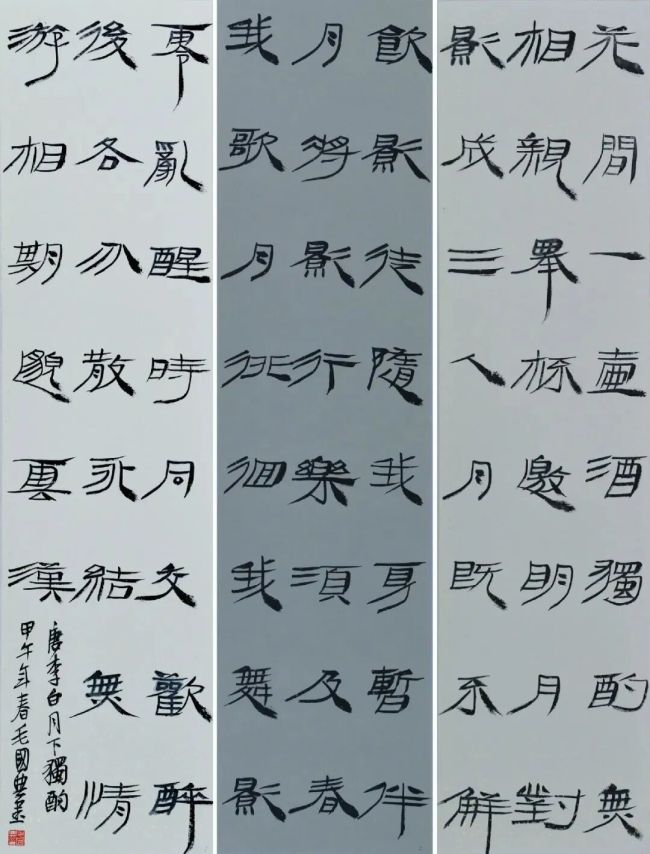 花間一壺酒獨酌無
相親舉杯邀明月對
影成三人月既不解
飲影徒隨我身暫伴
月將影行樂須及春
我歌月徘徊我舞影
零亂醒時同交歡醉
後各分散永結無情
游相期邈雲漢
唐李白月下獨酌
甲午年春毛國典書